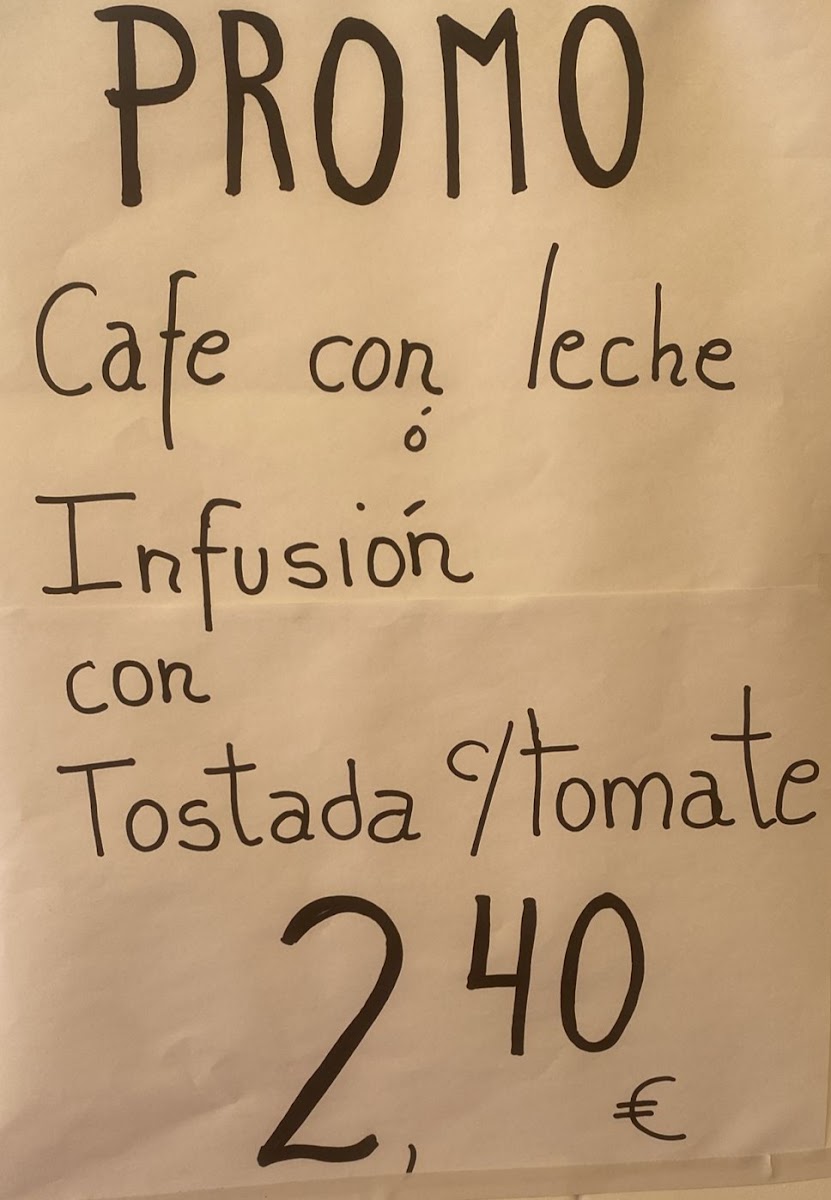 PROMO
Cafe con leche
ó
Infusión
con
Tostada c/tomate
2,40
€